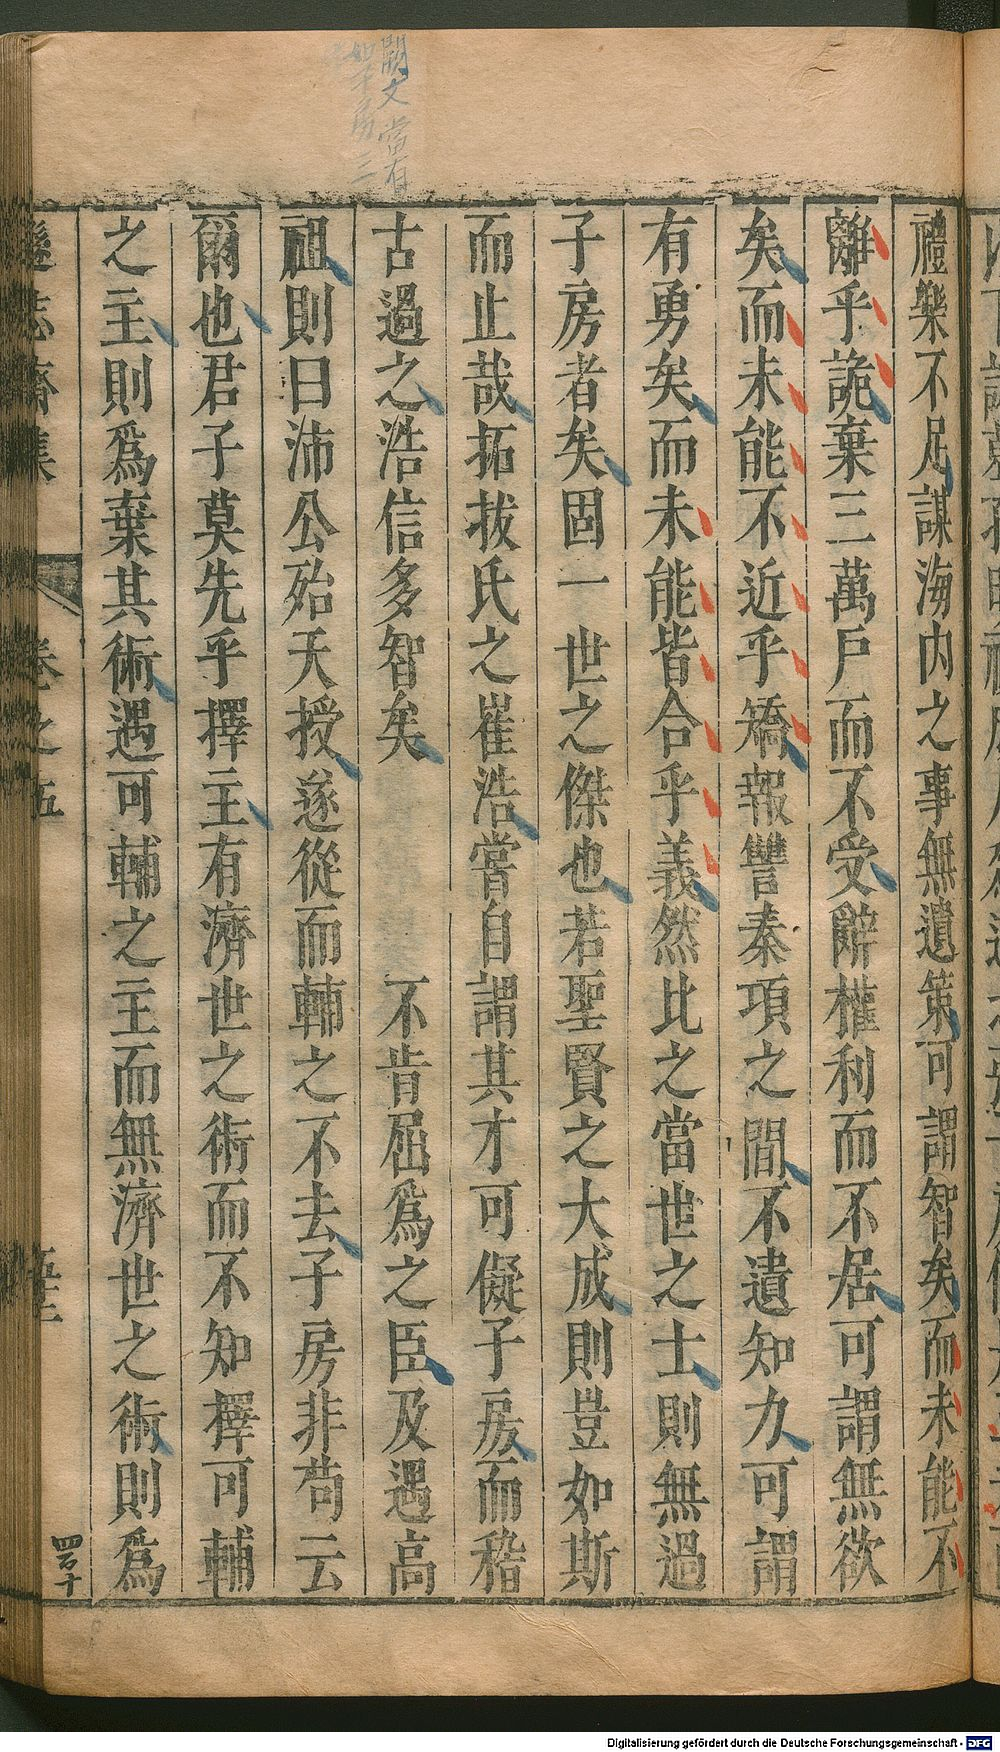 闕文當有
如子房三
禮樂不足謀海内之事無遺策可謂智矣而未能不
離乎詭棄三萬戶而不受辭權利而不居可謂無欲
矣而未能不近乎矯報讐秦項之間不遺知力可謂
有勇矣而未能皆合乎義然比之當世之士則無過
子房者矣固一世之傑也若聖賢之大成則豈如斯
而止哉拓拔氏之崔浩嘗自謂其才可儗子房而稽
古過之浩信多智矣 不肯屈爲之臣及遇高
祖則曰沛公殆天授遂從而輔之不去子房非苟云
爾也君子莫先乎擇主有濟世之術而不知擇可輔
之主則爲棄其術遇可輔之主而無濟世之術則爲
遜志齋集 卷之五
四百十
Digitalisierung gefördert durch die Deutsche Forschungsgemeinschaft - DFG